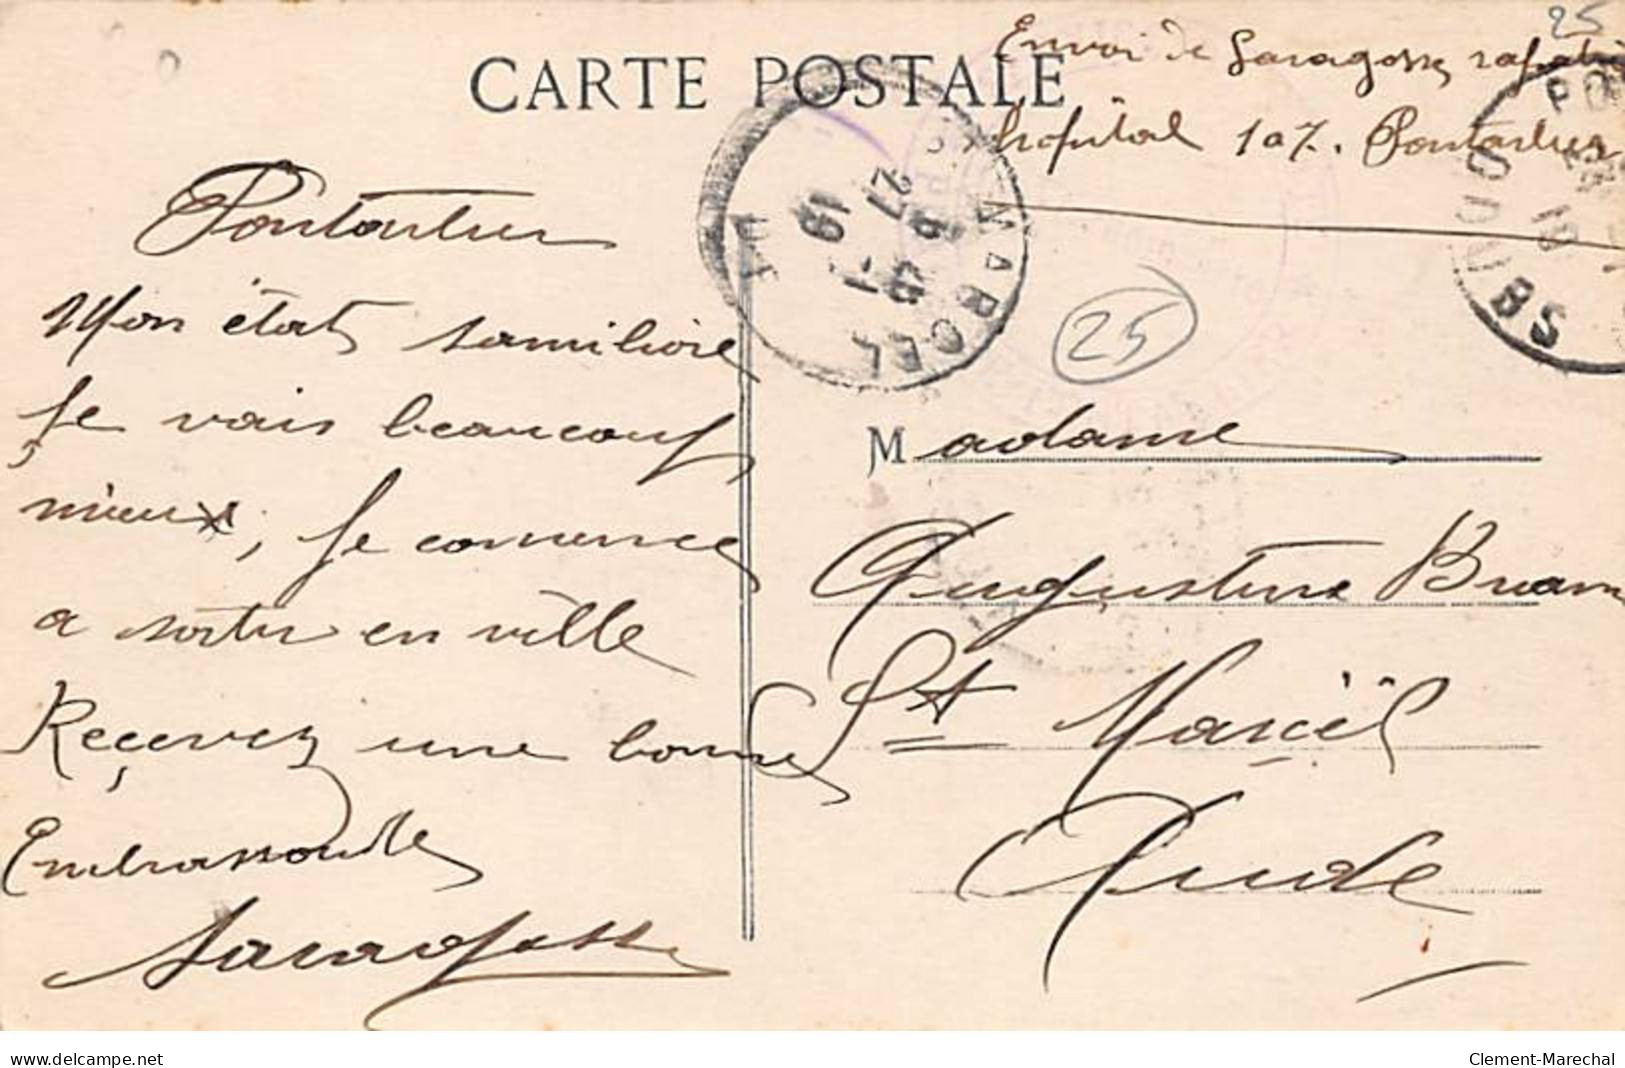 25
CARTE POSTALE
Envoi de Saragosse
hôpital 107. Pontarlier
Pontarlier
Mon état s'améliore
Je vais beaucoup
mieux, je commence
a sortir en ville
Reçevez une bonne
Embrassade
Saragosse
ST MARCEL
AUDE
27
DOUBS
25
Madame
Augustine
St Marcel
Aude
www.delcampe.net
Clement-Marechal